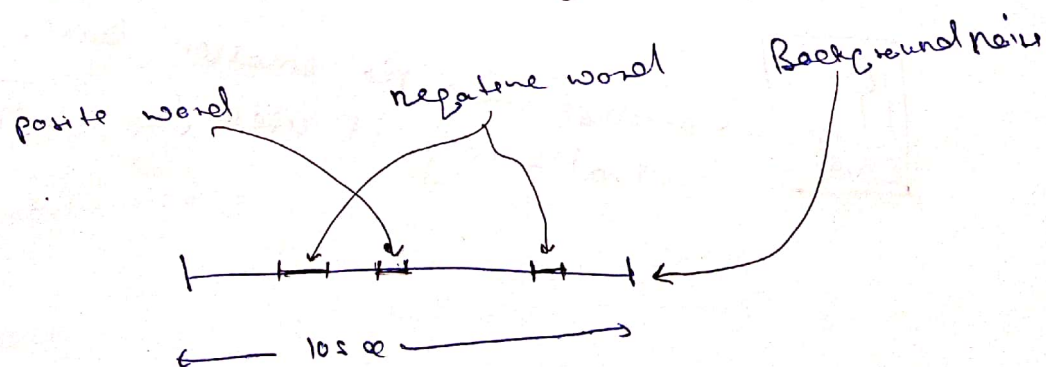 posite word
negative word
Background noise
10 sec